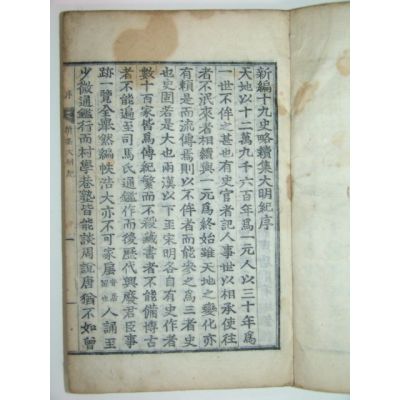 新編十九史略續集大明紀序
天地以十二萬九千六百年爲一元人以三十年爲
一世不侔之甚也有史官者記人事世以相承使往
者不泯來者相續與一元爲終始雖天地之變化亦
有賴是而流傳焉則以不侔者而能參以爲三者史
也史固若是大也兩漢以下至宋明各自有史作者
數十百家皆爲傳紀繁而不殺藏書者不能備博古
者不能遍至司馬氏通鑑作而後歷代興廢君臣事
跡一覽全畢然編帙浩大亦不可家人誦至
少微通鑑行而村學巷塾皆能談周說唐猶不如曾
序 大明紀